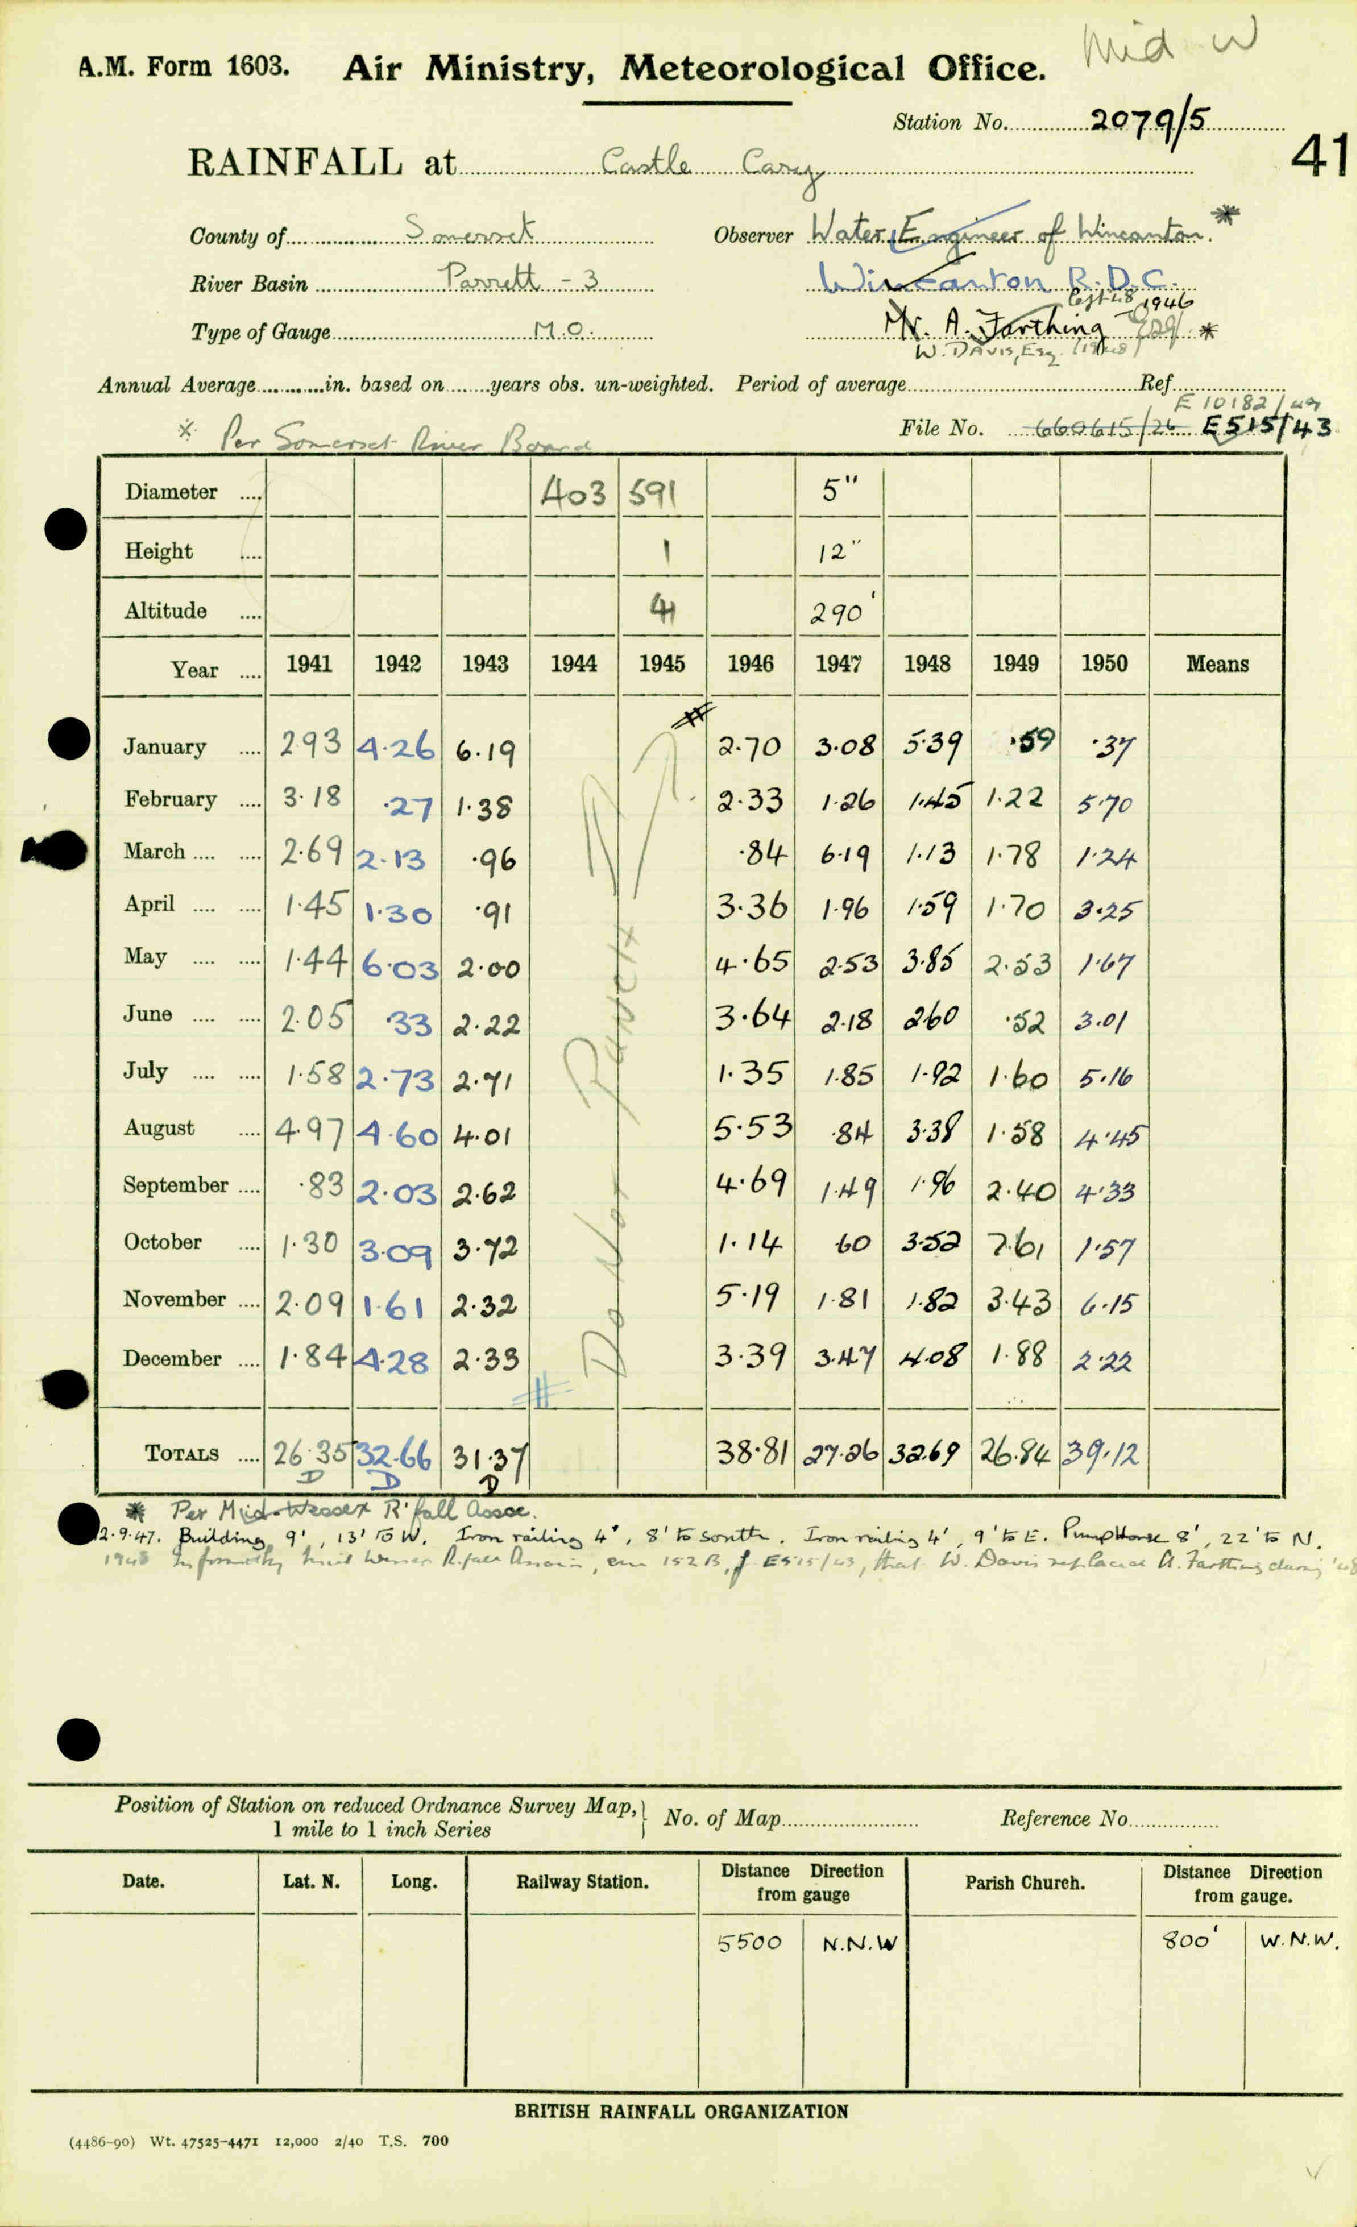 Mid W
A.M. Form 1603. Air Ministry, Meteorological Office.
Station No. 2079/5
41
RAINFALL at Castle Cary
County of Somerset Observer Water Engineer of Wincanton. *
River Basin Parrett - 3 Wincanton R.D.C.
Type of Gauge M.O. Mr. A. Farthing 1946 *
W. DAVIS, Esq. (1948)
Annual Average in. based on years obs. un-weighted. Period of average Ref
E 10182/49
* Per Somerset River Board File No. 660615/26 E515/43
Diameter 403 591 5"
Height 1 12"
Altitude 41 290'
Year 1941 1942 1943 1944 1945 1946 1947 1948 1949 1950 Means
January 2.93 4.26 6.19 2.70 3.08 5.39 .59 .37
February 3.18 .27 1.38 2.33 1.26 1.45 1.22 5.70
March 2.69 2.13 .96 .84 6.19 1.13 1.78 1.24
April 1.45 1.30 .91 3.36 1.96 1.59 1.70 3.25
May 1.44 6.03 2.00 4.65 2.53 3.85 2.53 1.67
June 2.05 .33 2.22 3.64 2.18 2.60 .52 3.01
July 1.58 2.73 2.71 1.35 1.85 1.92 1.60 5.16
August 4.97 4.60 4.01 5.53 .84 3.38 1.58 4.45
September .83 2.03 2.62 4.69 1.49 1.96 2.40 4.33
October 1.30 3.09 3.72 1.14 .60 3.52 7.61 1.57
November 2.09 1.61 2.32 5.19 1.81 1.82 3.43 6.15
December 1.84 4.28 2.33 3.39 3.47 4.08 1.88 2.22
Do Not PUNCH
TOTALS 26.35 32.66 31.37 38.81 27.26 32.69 26.84 39.12
D D D
* Per Mid-Wessex R'fall Assoc.
12.9.47. Building 9', 13' to W. Iron railing 4', 8' to south. Iron railing 4', 9' to E. Pump House 8', 22' to N.
1948 Wessex R.fall Assocn, 152B, E515/43, that W. Davis replaced A. Farthing during '48
Position of Station on reduced Ordnance Survey Map, No. of Map Reference No.
1 mile to 1 inch Series
Date. Lat. N. Long. Railway Station. Distance Direction from gauge Parish Church. Distance Direction from gauge.
5500 N.N.W 800' W.N.W.
BRITISH RAINFALL ORGANIZATION
(4486-90) Wt. 47525-4471 12,000 2/40 T.S. 700